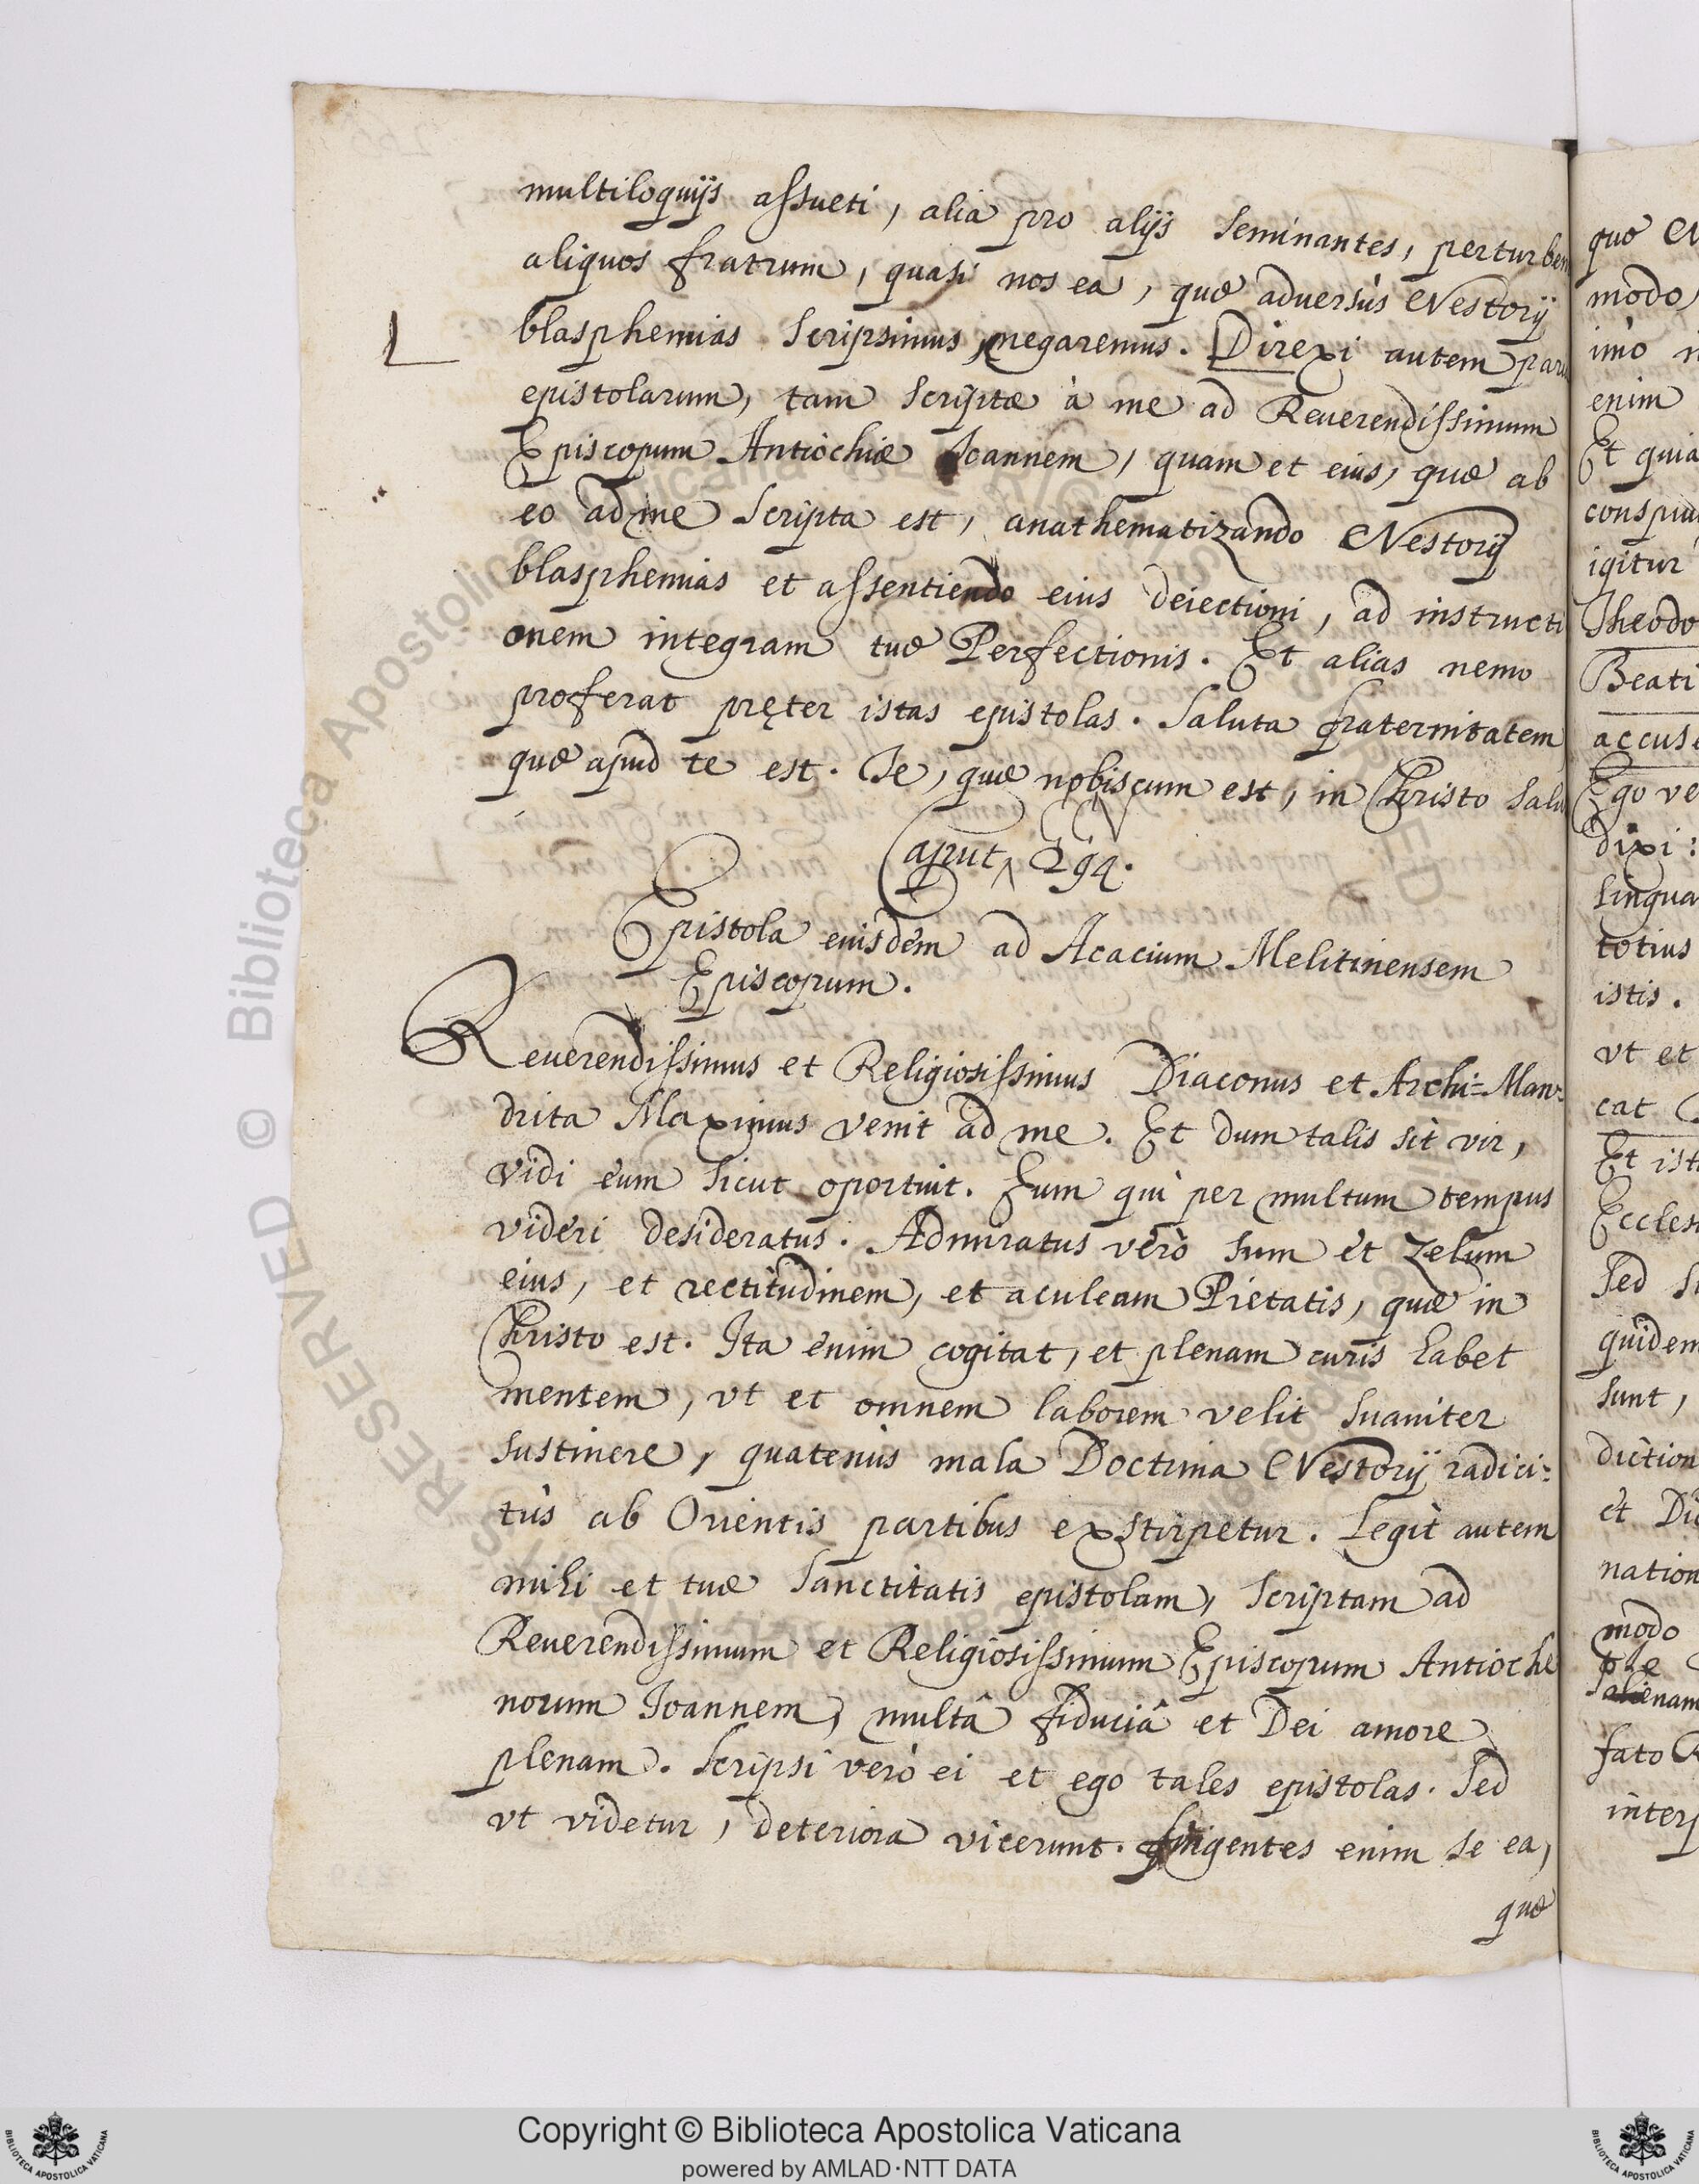 multiloquijs assueti, alia pro alijs seminantes, perturben
aliquos fratrum, quasi nos ea, quæ aduersùs Nestorij
blasphemias scripsimus, negaremus. Direxi autem paria
epistolarum, tam scriptæ à me ad Reuerendissimum
Episcopum Antiochiæ Joannem, quam et eius, quæ ab
eo ad me scripta est, anathematizando Nestorij
blasphemias et assentiendo eius deiectioni, ad instructi
onem integram tuæ Perfectionis. Et alias nemo
proferat pręter istas epistolas. Saluta fraternitatem
quæ apud te est. Te, quæ nobiscum est, in Christo salu
Caput 294.
Epistola eiusdem ad Acacium Melitinensem
Episcopum.
Reuerendissimus et Religiosissimus Diaconus et Archi=Man=
drita Maximus venit ad me. Et dum talis sit vir,
vidi eum sicut oportuit. Eum qui per multum tempus
videri desideratus. Admiratus verò sum et zelum
eius, et rectitudinem, et aculeam Pietatis, quæ in
Christo est. Ita enim cogitat, et plenam curis habet
mentem, vt et omnem laborem velit suauiter
sustinere, quatenus mala Doctrina Nestorij radici=
tùs ab Orientis partibus exstirpetur. Legit autem
mihi et tuæ Sanctitatis epistolam, scriptam ad
Reuerendissimum et Religiosissimum Episcopum Antioche
norum Joannem, multâ fiduciâ et Dei amore
plenam. Scripsi verò ei et ego tales epistolas. Sed
vt videtur, deteriora vicerunt. fingentes enim se ea,
quæ
quo
modo,
imò
enim
Et quia
conspui
igitur
Theodo
Beati
accus
Ego ve
dixi:
lingua
totius
istis.
vt et
cat
Et ist
Eccles
Sed
quidem
sunt,
diction
et
nation
modo
ple
alienam
fato
inter
Copyright © Biblioteca Apostolica Vaticana
powered by AMLAD·NTT DATA
© Biblioteca Apostolica Vaticana
RESERVED
BIBLIOTECA APOSTOLICA VATICANA
BIBLIOTECA APOSTOLICA VATICANA